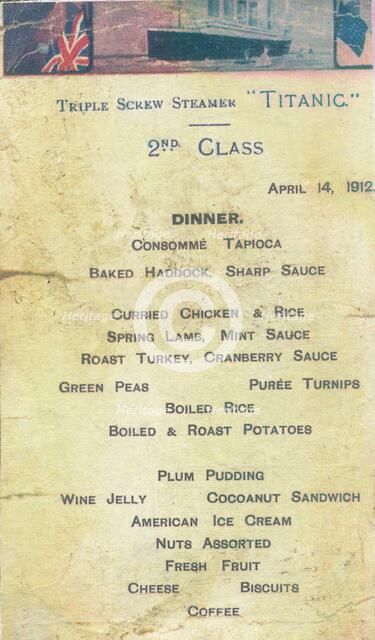 Triple Screw Steamer "Titanic."
2ND. Class
April 14, 1912.
DINNER.
Consommé Tapioca
Baked Haddock, Sharp Sauce
Curried Chicken & Rice
Spring Lamb, Mint Sauce
Roast Turkey, Cranberry Sauce
Green Peas Purée Turnips
Boiled Rice
Boiled & Roast Potatoes
Plum Pudding
Wine Jelly Cocoanut Sandwich
American Ice Cream
Nuts Assorted
Fresh Fruit
Cheese Biscuits
Coffee